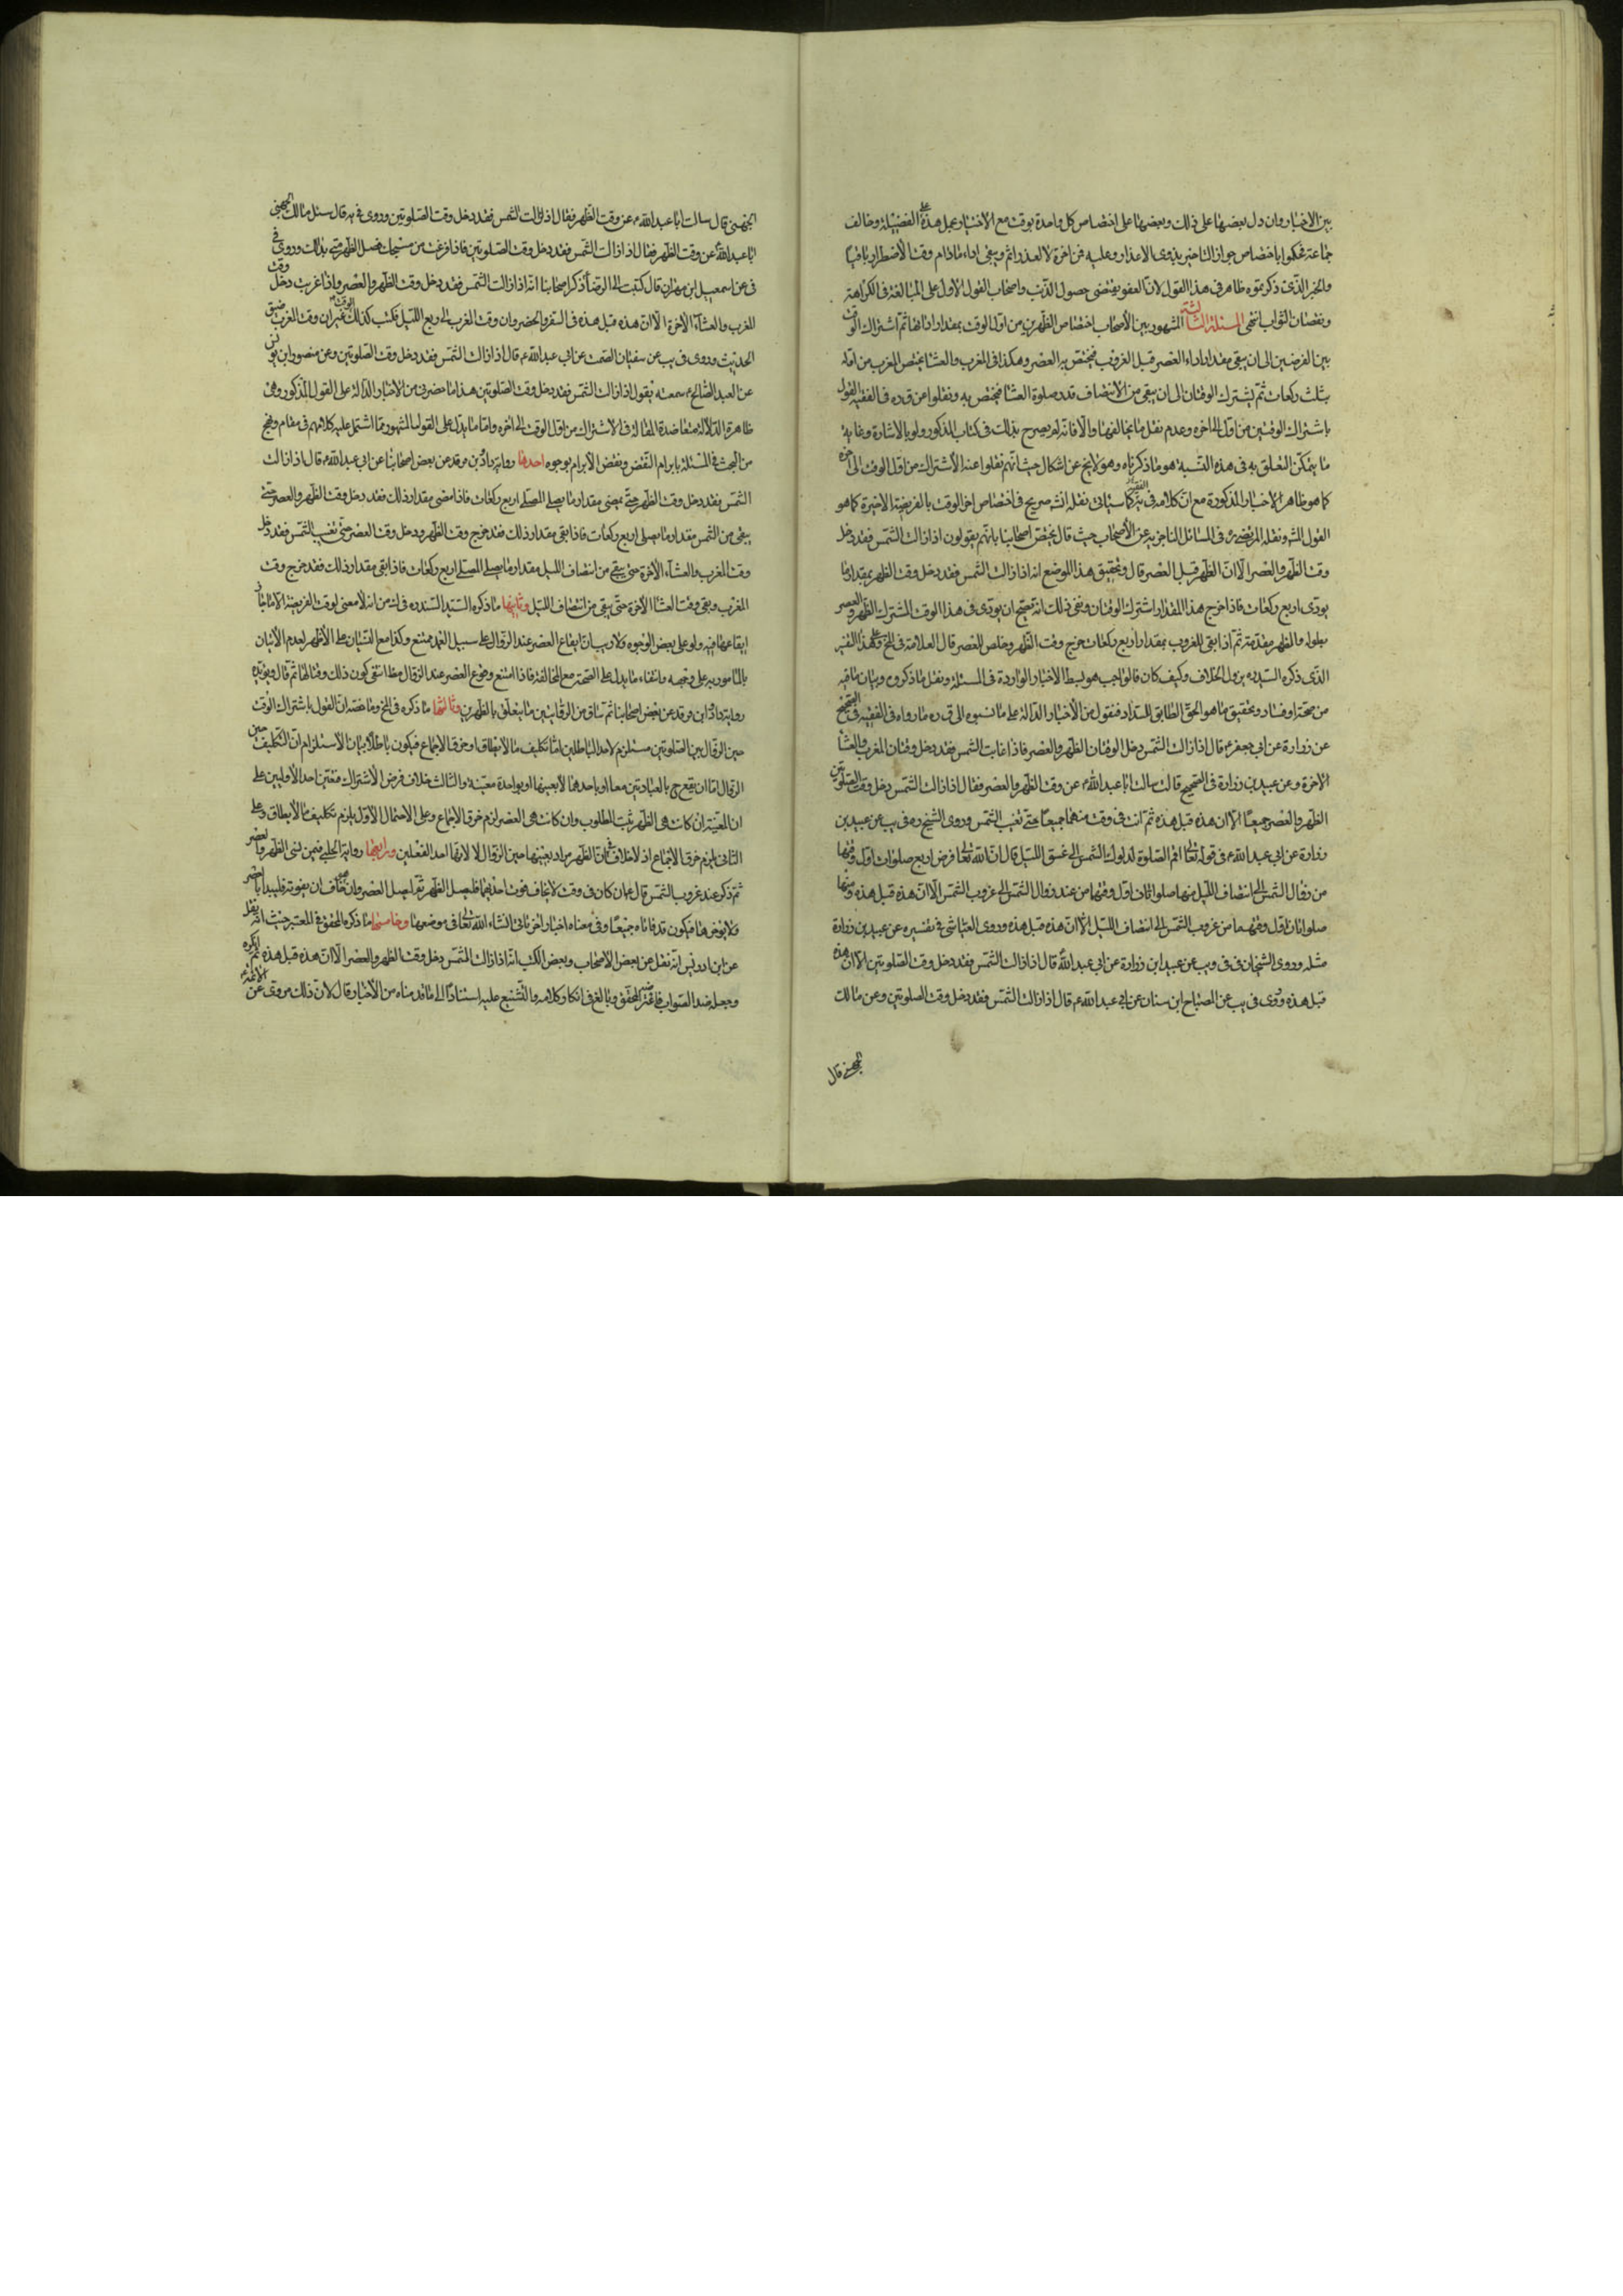 بين الاخبار وان دل بعضها على ذلك وبعضها على اختصاص كل واحدة بوقت مع الاختيار بحمل هذه على الفضيلة وخالف
جماعة فحكموا باختصاص جواز التاخير بذوى الاعذار وعليه فمن اخره لا لعذر اثم ويبقى اداء ما دام وقت الاضطرار باقيا
والخبر الذى ذكرتموه ظاهر فى هذا القول لان العفو يقتضى حصول الذنب واصحاب القول الاول على المبالغة فى الكراهة
ونقصان الثواب انتهى المسئلة الثالثة المشهور بين الأصحاب اختصاص الظهر من اول الوقت بمقدار ادائها ثم اشتراك الوقت
بين الفرضين الى ان يبقى مقدار اداء العصر قبل الغروب فيختص به العصر وهكذا فى المغرب والعشا يختص المغرب من اوله
بثلث ركعات ثم يشترك الوقتان الى ان يبقى من الانتصاف قدر صلوة العشا فيختص به ونقلوا عن ق ره فى الفقيه القول
باشتراك الوقتين من اول الى اخره وعدم نقل ما يخالفها والا فانه لم يصرح بذلك فى كتاب المذكور ولو بالاشارة وغاية
ما يتمكن التعلق به فى هذه النسبة هو ما ذكرناه وهو لا يخ عن اشكال حيث انهم نقلوا عنه الاشتراك من اول الوقت الى اخره
كما هو ظاهر الاخبار المذكورة مع ان كلامه فى الفقيه كما سياتى نقله انش صريح فى اختصاص اخر الوقت بالفريضة الاخيرة كما هو
القول المشهور ونقله المرتضى رض فى المسائل الناصرية عن الأصحاب حيث قال يختص اصحابنا بانهم يقولون اذا زالت الشمس فقد دخل
وقت الظهر والعصر الا ان الظهر قبل العصر قال وتحقيق هذا الموضع انه اذا زالت الشمس فقد دخل وقت الظهر بمقدار ما
يودى اربع ركعات فاذا خرج هذا المقدار اشترك الوقتان ومعنى ذلك انه يصح ان يودى فى هذا الوقت المشترك الظهر والعصر
بطوله والظهر مقدمة ثم اذا بقى للغروب بمقدار اربع ركعات خرج وقت الظهر وخلص للعصر قال العلامة فى المخ وعلى هذا التفسير
الذى ذكره السيد ره يزول الخلاف وكيف كان فالواجب هو بسط الاخبار الواردة فى المسئلة ونقل ما ذكروه وبيان ما فيه
من صحة او فساد وتحقيق ما هو الحق المطابق للسداد فنقول من الأخبار الدالة على ما نسبوه الى ق ره ما رواه فى الفقيه فى الصحيح
عن زرارة عن ابى جعفر ع قال اذا زالت الشمس دخل الوقتان الظهر والعصر فاذا غابت الشمس فقد دخل وقتان المغرب والعشا
الاخرة وعن عبيد بن زرارة فى الصحيح قال سالت ابا عبد الله ع عن وقت الظهر والعصر فقال اذا زالت الشمس دخل وقت الصلوتين
الظهر والعصر جميعا الا ان هذه قبل هذه ثم انت فى وقت منهما جميعا حتى تغيب الشمس وروى الشيخ ره فى يب عن عبيد بن
زرارة عن ابى عبد الله ع فى قوله تعالى اقم الصلوة لدلوك الشمس الى غسق الليل قال ان الله تعالى فرض اربع صلوات اول وقتها
من زوال الشمس الى انتصاف الليل منها صلوتان اول وقتهما من عند زوال الشمس الى غروب الشمس الا ان هذه قبل هذه ومنها
صلوتان اول وقتهما من غروب الشمس الى انتصاف الليل الا ان هذه قبل هذه وروى العياشى فى تفسيره عن عبيد بن زرارة
مثله وروى الشيخان فى فى ويب عن عبيد ابن زرارة عن ابى عبد الله ع قال اذا زالت الشمس فقد دخل وقت الصلوتين الا ان هذه
قبل هذه وروى فى يب عن الصباح ابن سنان عن ابى عبد الله ع قال اذا زالت الشمس فقد دخل وقت الصلوتين وعن مالك
الجهنى قال
الجهنى قال سالت ابا عبد الله ع عن وقت الظهر فقال اذا زالت الشمس فقد دخل وقت الصلوتين وروى فى يه قال سئل مالك الجهنى
ابا عبد الله ع عن وقت الظهر فقال اذا زالت الشمس فقد دخل وقت الصلوتين فاذا فرغت من سبحتك فصل الظهر متى بدا لك وروى فى
فى عن اسمعيل ابن مهران قال كتبت الى الرضا ع ذكر اصحابنا انه اذا زالت الشمس فقد دخل وقت الظهر والعصر واذا غربت دخل وقت
المغرب والعشاء الأخرة الا ان هذه قبل هذه فى السفر والحضر وان وقت المغرب الى ربع الليل فكتب كذلك الوقت غير ان وقت المغرب ضيق
الحديث وروى فى يب عن سفيان السمط عن ابى عبد الله ع قال اذا زالت الشمس فقد دخل وقت الصلوتين وعن منصور ابن يونس
عن العبد الصالح ع سمعته يقول اذا زالت الشمس فقد دخل وقت الصلوتين هذا ما حضرنى من الاخبار الدالة على القول المذكور وهى
ظاهرة الدلالة متعاضدة المقالة فى الاشتراك من اول الوقت الى اخره واما ما يدل على القول المشهور مما اشتمل عليه كلامهم فى مقام
من البحث فى المسئلة بابرام النقض ونقض الابرام بوجوه احدها رواية داود بن فرقد عن بعض اصحابنا عن ابى عبد الله ع قال اذا زالت
الشمس فقد دخل وقت الظهر حتى يمضى مقدار ما يصلى المصلى اربع ركعات فاذا مضى مقدار ذلك فقد دخل وقت الظهر والعصر حتى
يبقى من الشمس مقدار ما يصلى اربع ركعات فاذا بقى مقدار ذلك فقد خرج وقت الظهر ودخل وقت العصر حتى تغيب الشمس فقد دخل
وقت المغرب والعشاء الأخرة حتى يبقى من انتصاف الليل مقدار ما يصلى المصلى اربع ركعات فاذا بقى مقدار ذلك فقد خرج وقت
المغرب وبقى وقت العشا الأخرة حتى يبقى من انتصاف الليل وثانيها ما ذكره السيد السند ره فى ك من انه لا معنى لوقت الفريضة الا ما جاز
ايقاعها فيه ولو على بعض الوجوه ولا ريب ان ايقاع العصر عند الزوال على سبيل العمد ممتنع وكذا مع النسيان على الأظهر لعدم الأتيان
بالمامور به على وجهه وانتفاء ما يدل على الصحة مع المخالفة فاذا امتنع وقوع العصر عند الزوال مطلقا انتفى كون ذلك وقتا لها ثم قال ويؤيده
رواية داود ابن فرقد عن بعض اصحابنا ثم ساق من الرواية ما يتعلق بالظهرين وثالثها ما ذكره فى المخ وملخصه ان القول باشتراك الوقت
حين الزوال بين الصلوتين مستلزم لاحد الباطلين اما تكليف ما لا يطاق او خرق الاجماع فيكون باطلا بيان الأستلزام ان التكليف حين
الزوال اما ان يقع ح بالعبادتين معا او باحدهما لا بعينها او بواحدة معينة والثالث خلاف فرض الأشتراك فتعين احد الأولين على
ان المعينة ان كانت هى الظهر ثبت المطلوب وان كانت هى العصر لزم خرق الاجماع وعلى الاحتمال الأول يلزم تكليف ما لا يطاق وعلى
الثانى يلزم خرق الاجماع اذ لا خلاف فى ان الظهر مراد بعينها حين الزوال لا لانها احد الفعلين ورابعها رواية الحلبى فيمن نسى الظهر والعصر
ثم ذكر عند غروب الشمس قال ع ان كان فى وقت لا يخاف فوت احديهما فليصل الظهر ثم ليصل العصر وان هو خاف ان يفوته فليبدا بالعصر
ولا يؤخرها فيكون قد فاتاه جميعا وفى معناه اخبار اخر تاتى انشاء الله تعالى فى موضعها وخامسها ما ذكره المحقق فى المعتبر حيث انه نقل
عن ابن ادريس انه نقل عن بعض الأصحاب وبعض الكتب انه اذا زالت الشمس دخل وقت الظهر والعصر الا ان هذه قبل هذه ثم انكره
وجعله ضد الصواب فاعترضه المحقق وبالغ فى انكار كلامه والتشنيع عليه استنادا الى ما قدمناه من الأخبار قال لان ذلك مروى عن الأئمة